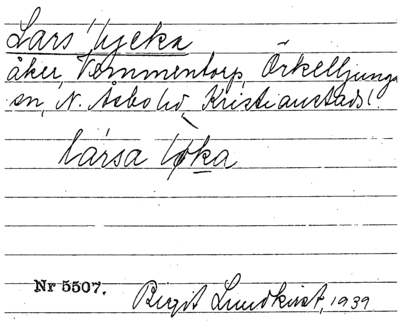 Lars lycka
åker, Vemmentorp, Örkelljunga
sn, N. Åsbo hd, Kristianstads l.
lársa l̀øka
Nr 5507.
Birgit Lundkvist, 1939